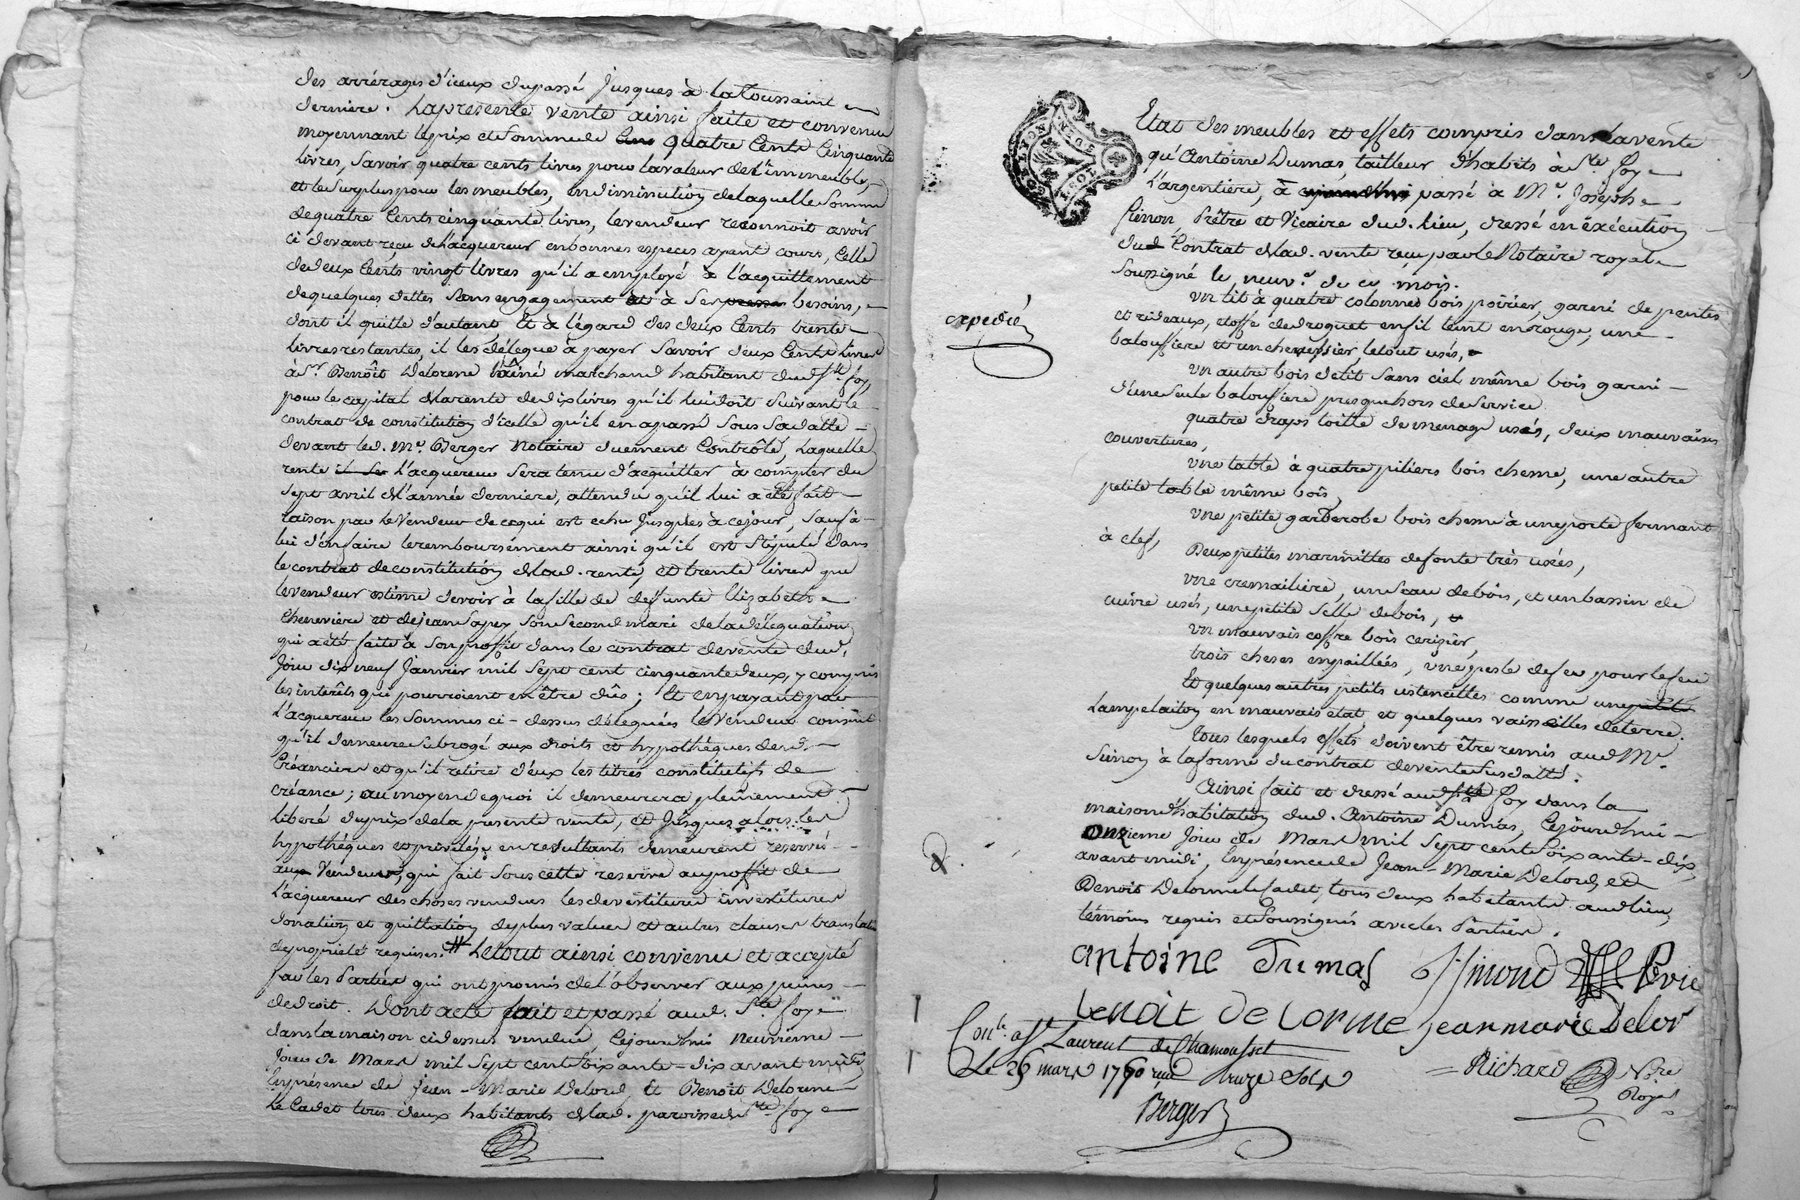 des arrérages d'iceux du passé jusques à la Toussaint
derniere. La presente vente ainsi faite et convenue
moyennant le prix et somme de quatre Cents Cinquante
livres, savoir quatre cents livres pour la valeur de l'immeuble,
et le surplus pour les meubles, en diminution de laquelle somme
de quatre Cents cinquante livres, le vendeur reconnoit avoir
ci devant reçu de l'acquereur en bonnes especes ayant cours, Celle
de deux Cents vingt livres qu'il a employé à l'acquittement
de quelques dettes sans engagement et à ses besoins,
dont il quitte d'autant, Et à l'égard des deux Cents trente
livres restantes, il les délegue à payer savoir deux Cents livres
à Sr. Benoît Delorme l'aîné marchand habitant dud. Ste. foy,
pour le capital de la rente de dix livres qu'il lui doit suivant le
contrat de constitution d'icelle qu'il en a passé sous sa datte
devant led. Me. Berger Notaire duement Contrôlé, Laquelle
rente l'acquereur sera tenu d'acquitter à compter du
sept avril de l'année derniere, attendu qu'il lui a été fait
raison par le vendeur de ce qui est echu jusques à ce jour, sauf à
lui d'en faire le remboursément ainsi qu'il est stipulé dans
le contrat de constitution de lad. rente, et trente livres que
le vendeur estime devoir à la fille de deffunte Elizabeth
Cheneviere et de jean sapey son second mari de la délégation
qui a été faite à son proffit dans le contrat de vente dud.
jour dix neuf janvier mil sept cent cinquante deux, y compris
les intérêts qui pourroient en être dûs ; Et en payant par
l'acquereur les sommes ci-dessus déleguées le vendeur consent
qu'il demeure subrogé aux droits et hypothéques desd.
Créanciers et qu'il retire d'eux les titres constitutifs de
créance ; au moyen de quoi il demeurera pleinement
liberé du prix de la presente vente, et jusques alors les
hypothéques et privileges en resultants demeurent reservés
au Vendeur, qui fait sous cette reserve au proffit de
l'acquereur des choses vendues les devestitures investitures
donation et quittation de plus value et autres clauses translatives
de propriété requises. # Le tout ainsi convenu et accepté
par les Parties qui ont promis de l'observer aux peines
de droit. Dont acte fait et passé aud. Ste. foy
dans la maison ci dessus vendue, Cejourdhui neuvieme
jour de Mars mil sept cent soixante-dix avant midi
En présence de jean-Marie Delord, Et Benoît Delorme
Le Cadet tous deux habitants de lad. paroisse de Ste. foy
GEN. DE LYON
Etat des meubles et effets compris dans la vente
qu'Antoine Dumas, tailleur d'habits à Ste. foy
L'argentiere, à passé à Me. Josephe
Simon, Prêtre et Vicaire dud. lieu, dressé en éxécution
du Contrat de lad. vente reçu par le Notaire royal
soussigné le neuv.e de ce mois.
expedié
un lit à quatre colonnes bois poirier, garni de pentes
et rideaux, etoffe de droguet en fil teint en rouge, une
baloussiere et un chevessier, le tout usés,
un autre bois de lit sans ciel même bois garni
d'une seule baloussiere presque hors de service
quatre draps toille de menage usés, deux mauvaises
couvertures,
une table à quatre piliers bois chesne, une autre
petite table même bois,
une petite garderobe bois chesne à une porte fermant
à clef,
Deux petites marmittes de fonte très usés,
une cremailiere, un seau de bois, et un bassin de
cuivre usés, une petite selle de bois,
un mauvais coffre bois cerisier,
trois cheses empaillées, une pesle de fer pour le feu
Et quelques autres petits ustencilles comme une
Lampe laiton en mauvais etat et quelques vaisselles de terre.
tous lesquels effets doivent être remis aud. Me.
Simon à la forme du contrat de vente susdatté.
Ainsi fait et dressé aud. Ste. Foy dans la
maison d'habitation dud. Antoine Dumas, Cejourdhui
Onzieme jour de Mars mil sept cent soixante-dix,
avant midi, En présence de Jean-Marie Delord, et
Benoit Delorme le Cadet, tous deux habitants aud. lieu,
témoins requis et soussignés avec les Parties.
antoine Dumas Simond Ptre Vic
benoit de lorme jean marie Delor
Conlé. à St Laurent de Chamousset
Le 26 mars 1770 reçu Onze Sols
Berger
Richard Nore
Royal